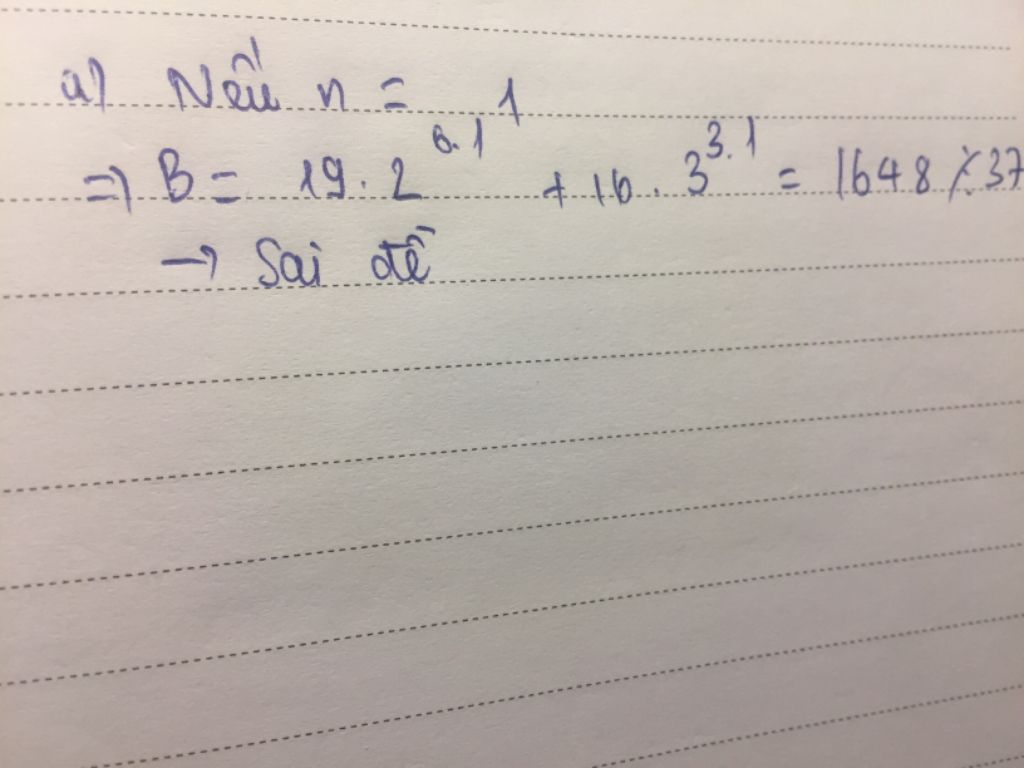 a) Nếu n = 1
=> B = 19 . 2^6.1 + 16 . 3^3.1 = 1648 ⋮̸ 37
→ Sai đề